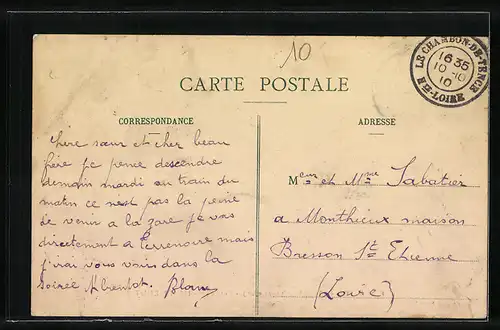 10
LE CHAMBON-DE-TENCE
16 35
10 -10
10
HTE-LOIRE
CARTE POSTALE
CORRESPONDANCE
ADRESSE
Chère sœur et cher beau
frère je pense descendre
demain mardi au train du
matin ce nest pas la peine
de venir a la gare je vais
directement a Terrenoire mais
j'irai vous voir dans la
soirée Abientot.
Mem et Msur Sabatier
a Monthieux maison
Bresson St Etienne
(Loire)